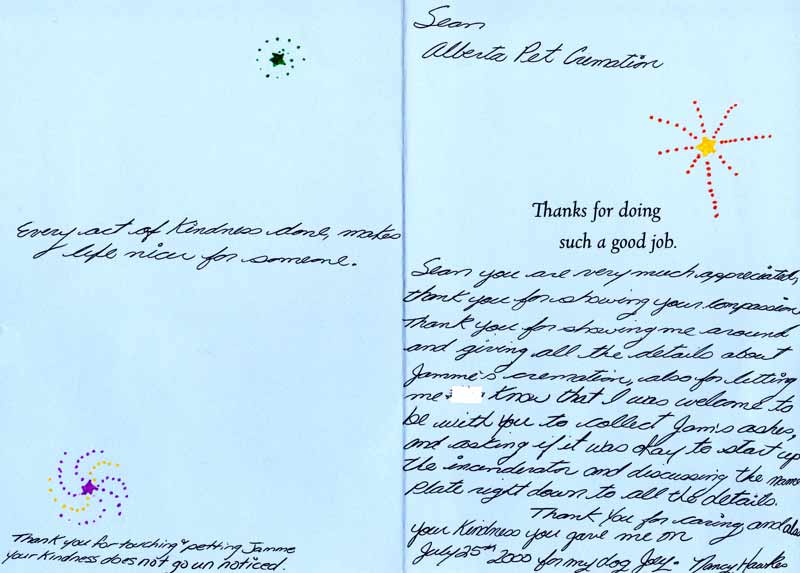 Every act of Kindness done, makes
life nicer for someone.
Thank you for touching & petting Jamme
your Kindness does not go un noticed.
Sean
Alberta Pet Cremation
Thanks for doing
such a good job.
Sean you are very much appreciated,
thank you for showing your compassion
Thank you for showing me around
and giving all the details about
Jamme's cremation, also for letting
me Know that I was welcome to
be with you to collect Jam's ashes,
and asking if it was okay to start up
the incinderator and discussing the name
plate right down to all the details.
Thank You for caring and also
your Kindness you gave me on
July 25th 2000 for my dog Joey. Nancy Hawkes